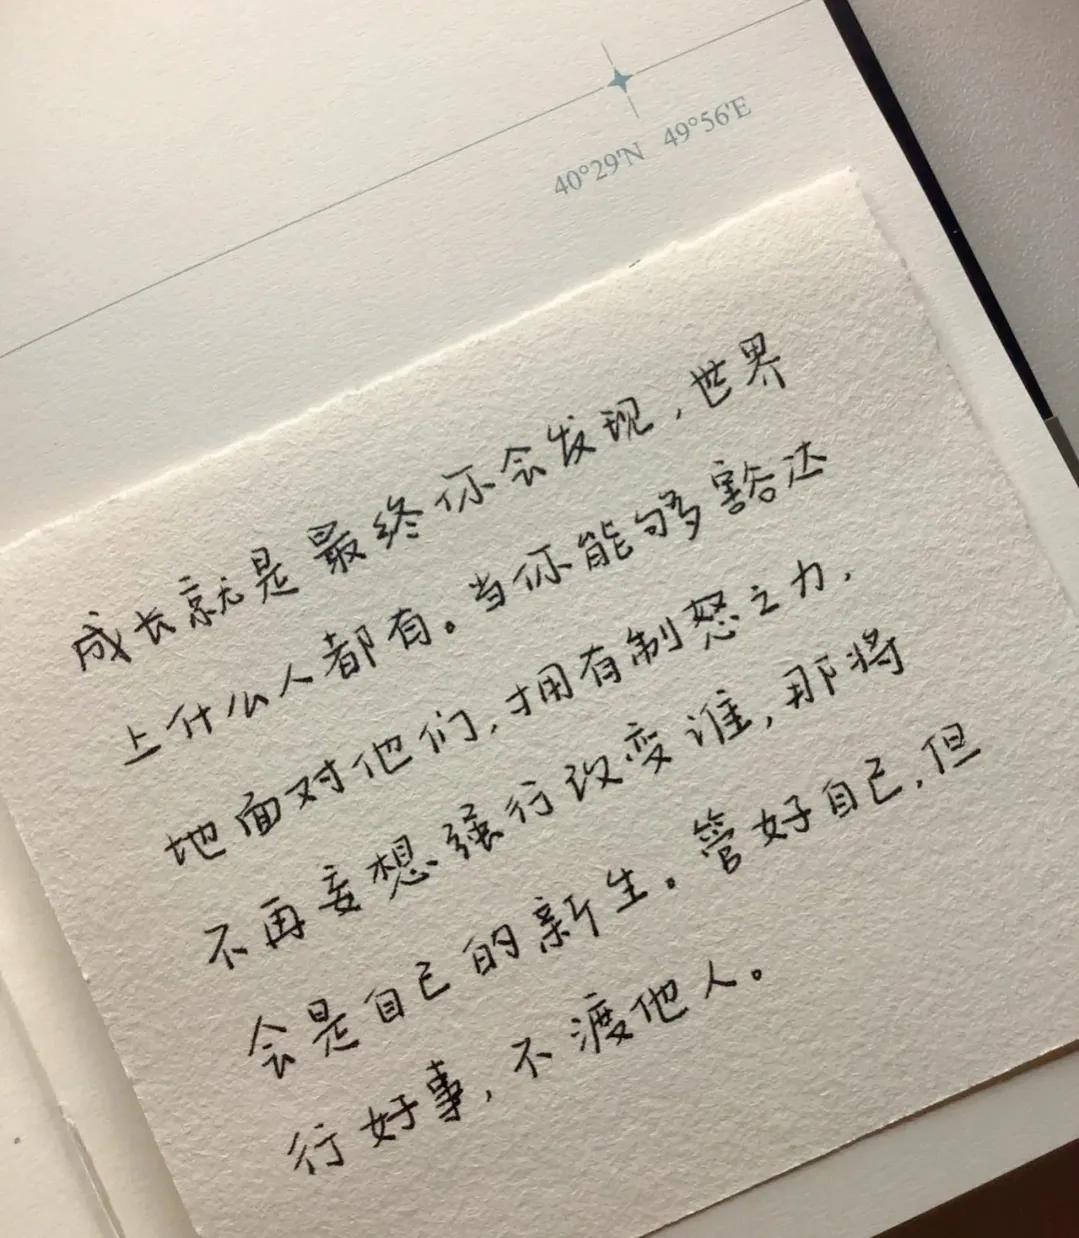 40°29'N 49°56'E
成长就是最终你会发现，世界
上什么人都有。当你能够豁达
地面对他们，拥有制怒之力，
不再妄想强行改变谁，那将
会是自己的新生。管好自己，但
行好事，不渡他人。